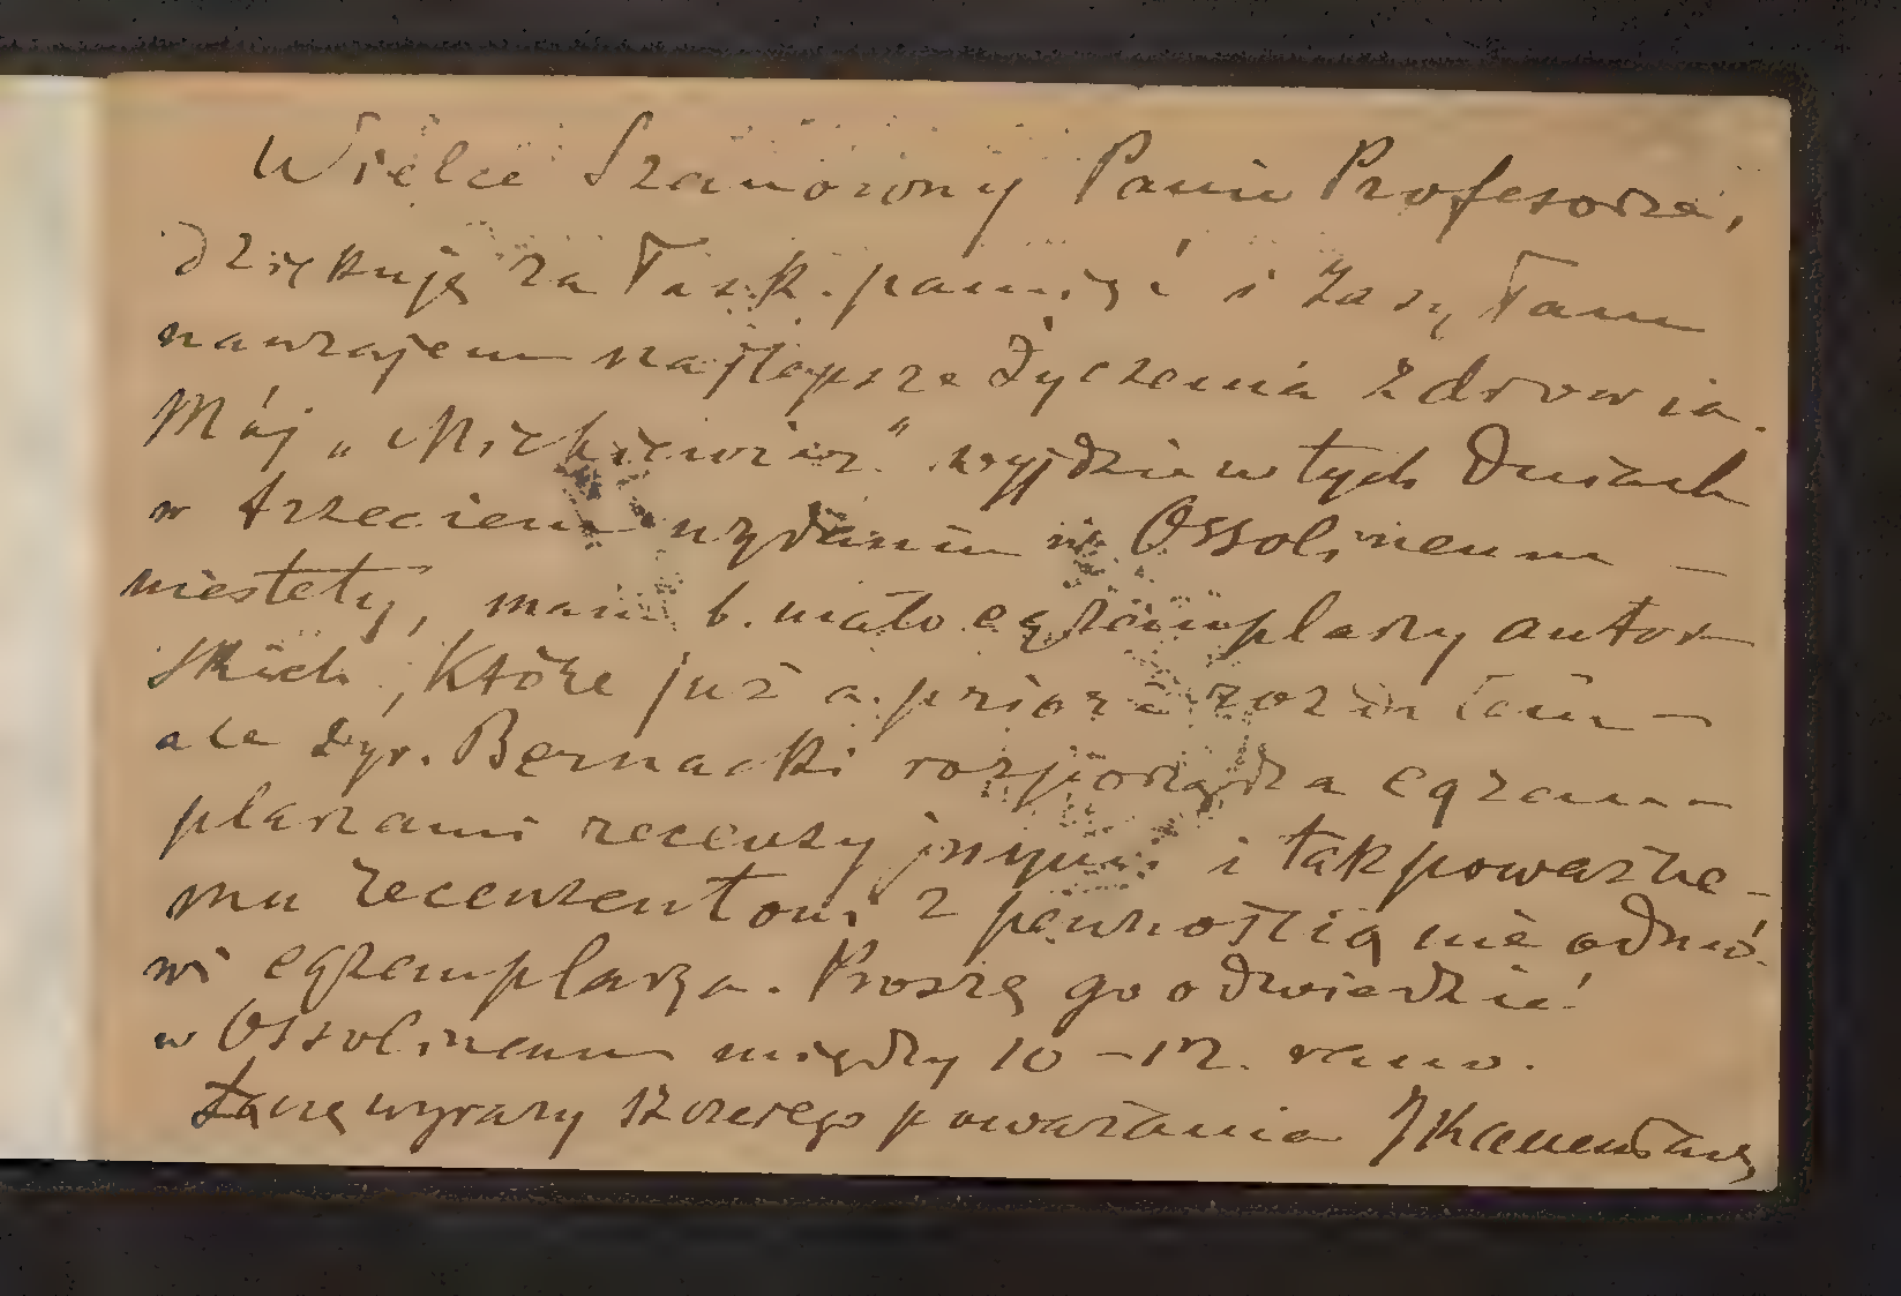 Wielce Szanowny Panie Profesorze,
dziękuję za łask. pamięć i zasyłam
nawzajem najlepsze życzenia zdrowia.
Mój „Mickiewicz" wyjdzie w tych dniach
w trzeciem wydaniu w Ossolineum —
niestety, mam b. mało egzemplarzy autor-
skich, które już a priori rozdałem —
ale dyr. Bernacki rozporządza egzem-
plarzami recenzyjnymi i tak poważne-
mu recenzentowi z pewnością nie odmó-
wi egzemplarza. Proszę go odwiedzić
w Ossolineum między 10–12. rano.
Łączę wyrazy szczerego poważania JKallenbach